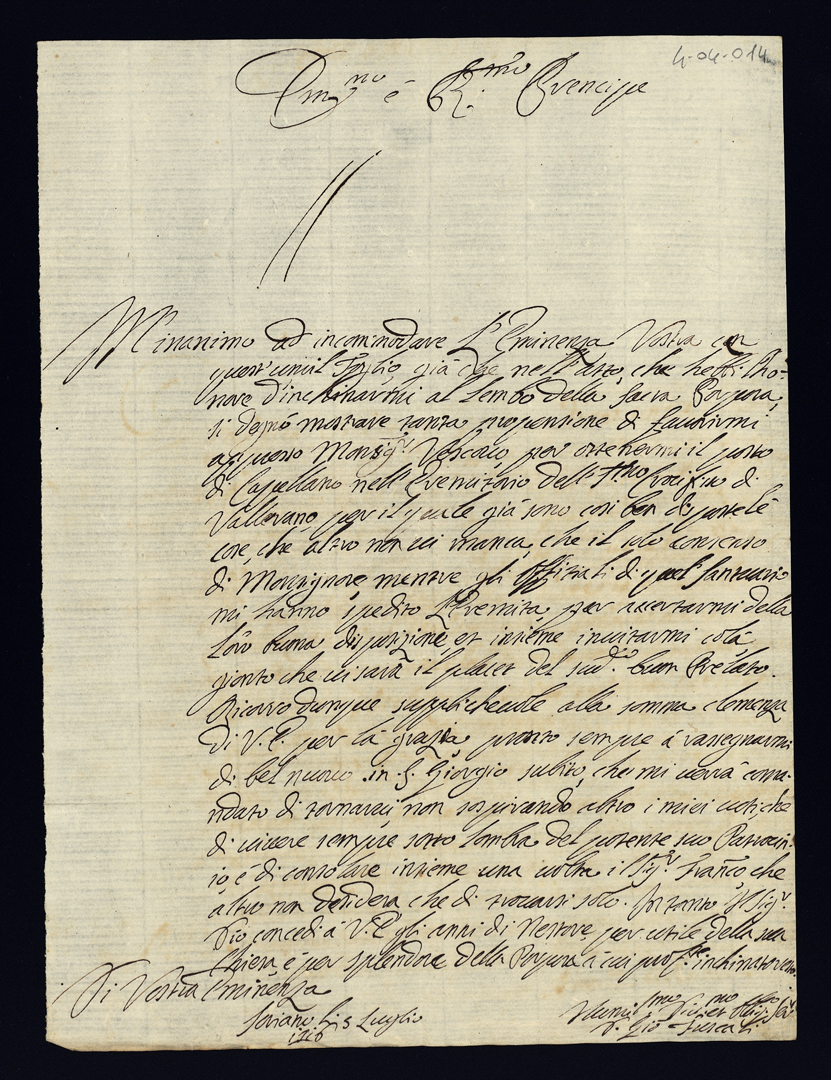 4-04-014
Em.mo e R.mo Prencipe
M'inanimo ad incommodare l'Eminenza Vostra con
quest'umil foglio già che nell'atto, che hebbi l'ho-
nore d'inchinarmi al lembo della sacra Porpora,
si degnò mostrare tanta propensione di favorirmi
appresso Monsig.r Vescovo per ottenermi il posto
di Capellano nell'Eremitorio dell' Crocifisso di
Vallerano, per il quale già sono così ben disposte le
cose, che altro non vi manca, che il solo consenso
di Monsignore, mentre gli Offiziali di quel santuario
mi hanno spedito l'Eremita, per accertarmi della
loro buona disposizione et insieme invitarmi colà
gionto che vi sarà il placet del sud.o buon Prelato.
Ricorro dunque supplichevole alla somma clemenza
di V.E. per la grazia pronto sempre à rassegnarmi
di bel nuovo in S. Giorgio subito, che mi verrà coman-
ndato di tornarci non sospirando altro i miei voti che
di vivere sempre sotto l'ombra del potente suo Patrocin-
io è di consolare insieme una volta il Sig.r Franc.o che
altro non desidera che di trovarsi solo. In tanto il Sig.r
Dio concedi à V.E. gli anni di Nestore, per utile della sua
Chiesa è per splendore della Porpora à cui prof.te inchinato
Di Vostra Eminenza
Soriano li 5 Luglio
Humil.mo Div.mo et Oblig.mo Ser.
D. Gio